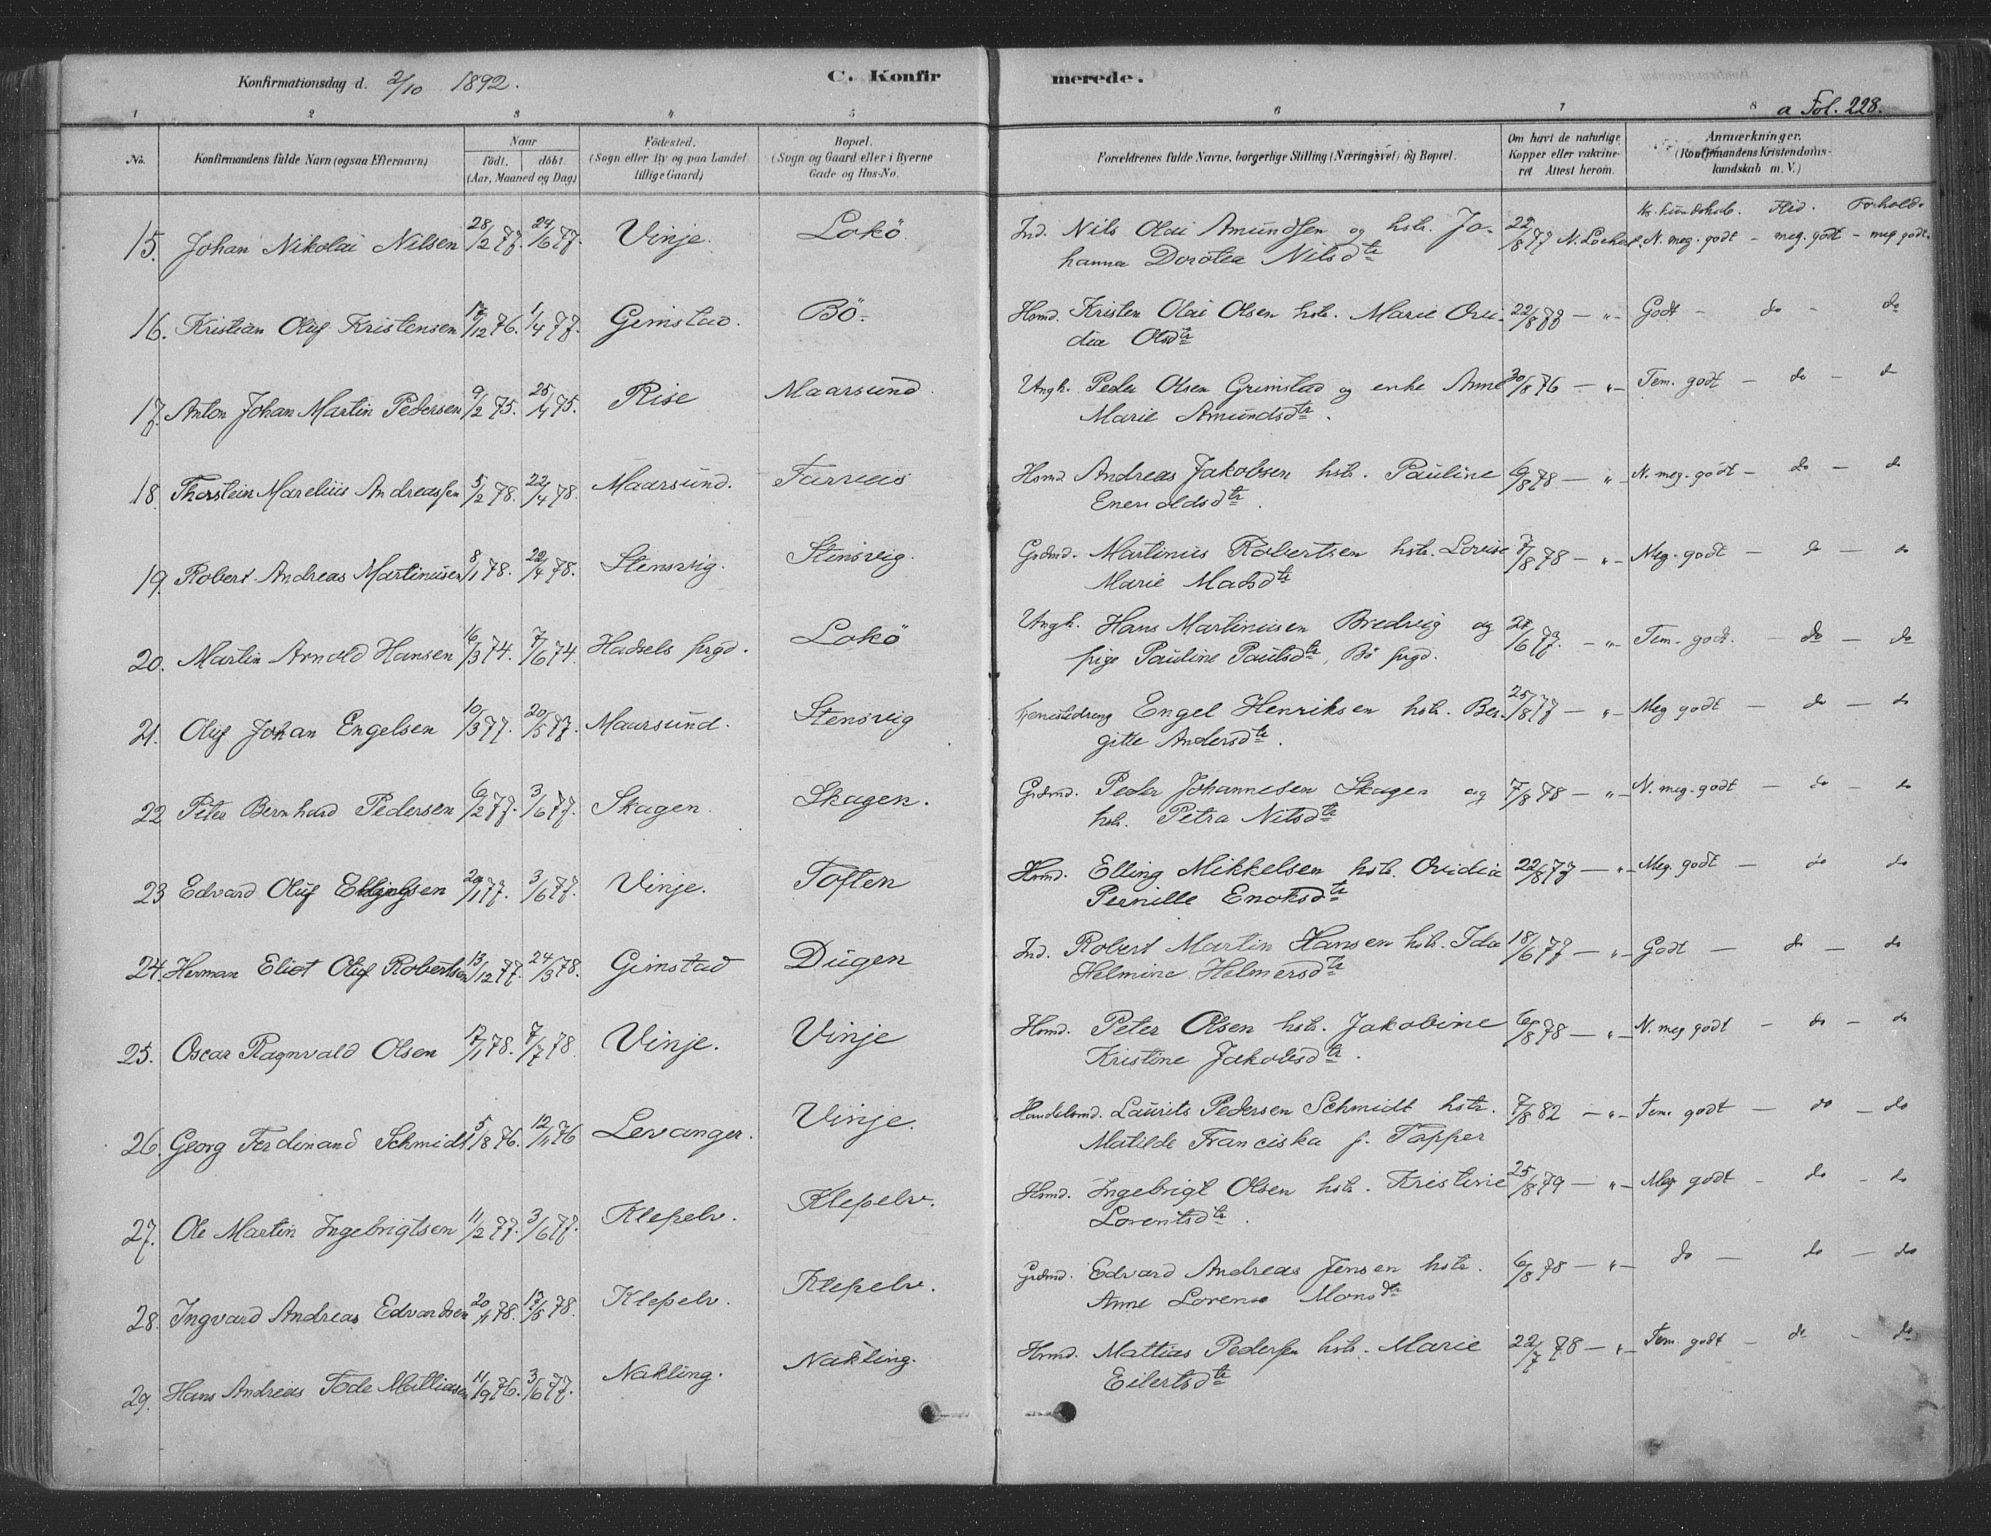 Konfirmationsdag d. 2/10 1892. C. Konfirmerede.
a Fol. 228.
1 2 3 4 5 6 7 8
No. Konfirmandens fulde Navn (ogsaa Efternavn) Naar født. døbt. (Aar, Maaned og Dag) Fødested. (Sogn eller By og paa Landet tillige Gaard) Bopæl. (Sogn og Gaard eller i Byerne Gade og Hus-No. Forældrenes fulde Navne, borgerlige Stilling (Næringsvei) og Bopæl. Om havt de naturlige Kopper eller vakcineret Attest herom. Anmærkninger. (Konfirmandens Kristendomskundskab m. V.)
Kr. kundskab. Flid. Forhold.
15. Johan Nikolai Nilsen 28/2 77. 24/6 77. Vinje. Lokö Ind. Nils Olai Amundsen og hstr. Jo- 22/8 77 N. Lockert. N. meg. godt - meg. godt - meg godt.
hanna Dorotea Nilsdtr
16. Kristian Oluf Kristensen 17/12 76. 1/4 77. Gimstad. Bö. Hsmd. Kristen Olai Olsen hstr. Marie Ovi- 22/8 78 - " - Godt - do - do
dia Olsdtr
17. Anton Johan Martin Pedersen 9/2 75. 25/4 75. Rise Maarsund. Ungk. Peder Olsen Grimstad og enke Anne 30/8 76 - " - Tem. godt - do - do
Marie Amundsdtr.
18. Thorstein Marelius Andreassen 5/2 78. 22/4 78. Maarsund. Farvaas Hsmd. Andreas Jakobsen hstr. Pauline 6/8 78 - " - N. meg. godt - do - do
Enevoldsdtr.
19. Robert Andreas Martinusen 8/1 78. 22/4 78. Stensvig. Stensveig. Grdmd. Martinus Robertsen hstr. Lovise 7/8 78 - " - Meg. godt - do - do
Marie Madsdtr
20. Martin Arnold Hansen 16/3 74. 7/6 74. Hadsels prgd. Lokö Ungk. Hans Martinusen Bredvig og 27/6 77. - " - Tem. godt. - do - do
pige Pauline Paulsdtr, Bö prgd.
21. Oluf Johan Engelsen 10/3 77. 20/5 77. Maarsund. Stensvig Tjenestedreng Engel Henriksen hstr. Ber- 25/8 77 - " - Meg godt - do - do
gitte Andersdtr.
22 Peter Bernhard Pedersen 6/2 77. 3/6 77. Skagen. Skagen. Grdmd. Peder Johannesen Skagen og 7/8 78 - " - N. meg. godt - do - do
hstr. Petra Nilsdtr
23 Edvard Oluf Ellingsen 29/1 77. 3/6 77. Vinje. Toften Hsmd. Elling Mikkelsen hstr. Ovidia 22/8 77 - " - Meg. godt - do do
Pernille Enoksdtr
24. Herman Eliot Oluf Robertsen 13/12 77. 24/3 78. Gimstad Dugen Ind. Robert Martin Hansen hstr. Ida 18/6 77 - " - Godt - do - do
Helmine Helmersdtr
25. Oscar Ragnvald Olsen 17/1 78. 7/7 78. Vinje. Vinje Hsmd. Peter Olsen hstr. Jakobine 6/8 78 - " - N. meg godt - do - do
Kristine Jakobsdtr.
26. Georg Ferdinand Schmidt 5/8 76. 12/11 76 Levanger. Vinje. Handelsmd. Laurits Pedersen Schmidt hstr. 7/8 82 - " - Tem. godt - do - do
Matilde Franciska f. Tapper
27. Ole Martin Ingebrigtsen 11/2 77. 3/6 77. Klepelv. Klepelv. Hsmd. Ingebrigt Olsen hstr. Kristine 25/8 79 - " - Meg godt - do - do
Lorentsdtr.
28. Ingvard Andreas Edvardsen 20/1 78. 17/5 78. Klepelv. Klepelv. Grdmd. Edvard Andreas Jensen hstr. 6/8 78 - " - do - do - do
Anne Lorense Monsdtr
29. Hans Andreas Tode Mattiasen 11/9 76. 3/6 77. Nakling. Nakling. Hsmd. Mattias Pedersen hstr. Marie 22/7 78 - " - Tem. godt - do - do
Eilertsdtr